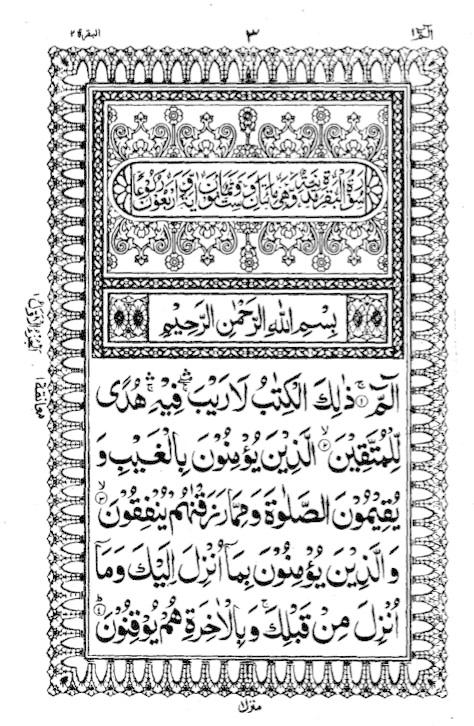 الٓمّٓ ۱
۳
البقرة ۲
سورة البقرة مدنیة وھی مائتان وست وثمانون اٰیة واربعون رکوعا
بِسْمِ اللهِ الرَّحْمٰنِ الرَّحِيْمِ
الٓمّٓ ۚ۱ ذٰلِكَ الْكِتٰبُ لَا رَيْبَ ۛۚ فِيْهِ ۛۚ هُدًى
لِّلْمُتَّقِيْنَ ۙ۲ الَّذِيْنَ يُؤْمِنُوْنَ بِالْغَيْبِ وَ
يُقِيْمُوْنَ الصَّلٰوةَ وَمِمَّا رَزَقْنٰهُمْ يُنْفِقُوْنَ ۙ۳
وَالَّذِيْنَ يُؤْمِنُوْنَ بِمَاۤ اُنْزِلَ اِلَيْكَ وَمَاۤ
اُنْزِلَ مِنْ قَبْلِكَ ۚ وَبِالْاٰخِرَةِ هُمْ يُوْقِنُوْنَ ؕ۴
معانقة ۱
منزل